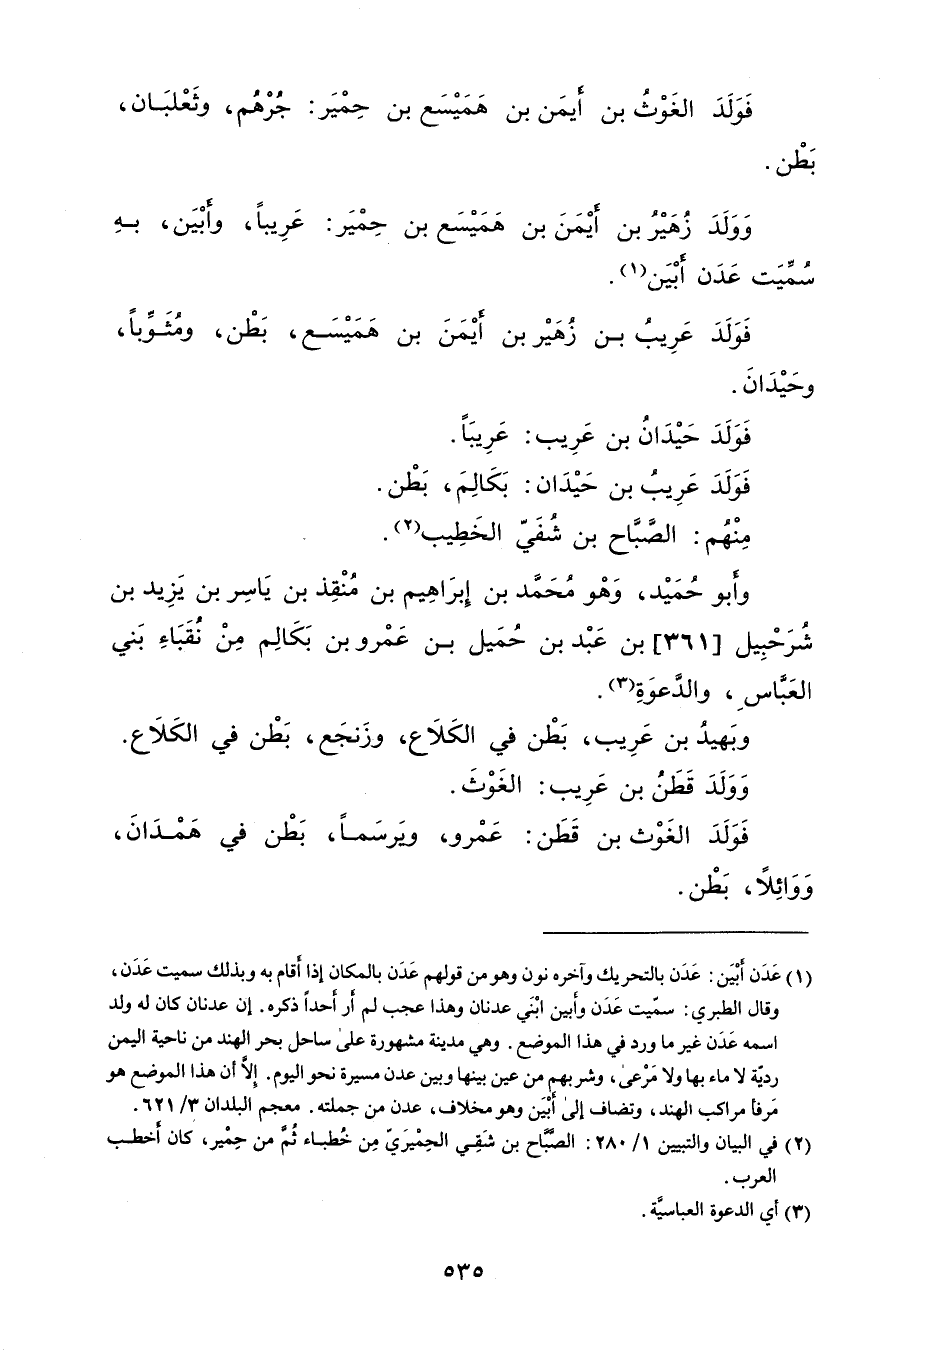 فَوَلَدَ الغَوْثُ بن أَيمَن بن هَمَيْسَع بن حِمْيَر: جُرْهُم، وثَعْلبَـان،
بَطْن.
وَوَلَدَ زُهَيْرُ بن أَيْمَنَ بن هَمَيْسَع بن حِمْيَر: عَرِيباً، وأَبْيَن، بـهِ
سُمِّيَت عَدَن أَبْيَن(١).
فَوَلَدَ عَرِيبُ بـن زُهَيْر بن أَيْمَنَ بن هَمَيْسَـع، بَطْن، ومُثَـوِّباً،
وحَيْدَانَ.
فَوَلَدَ حَيْدَانُ بن عَرِيب: عَرِيبَاً.
فَوَلَدَ عَرِيبُ بن حَيْدَان: بَكَالِمَ، بَطْن.
مِنْهُم: الصَّبَّاح بن شُفَيّ الخَطِيب(٢).
وأَبو حُمَيْد، وَهْو مُحَمَّد بن إِبرَاهِيم بن مُنْقِذ بن يَاسِر بن يَزِيد بن
شُرَحْبِيل [٣٦١] بن عَبْد بن حُمَيل بـن عَمْرو بن بَكَالِم مِنْ نُقَبَاءِ بَني
العَبَّاسِ، والدَّعوَةِ(٣).
وبَهيدُ بن عَرِيب، بَطْن في الكَلَاع، وزَنجَع، بَطْن في الكَلَاع.
وَوَلَدَ قَطَنُ بن عَرِيب: الغَوْثَ.
فَوَلَدَ الغَوْث بن قَطَن: عَمْرو، ويَرسَمـاً، بَطْن في هَمْـدَانَ،
وَوَائِلاً، بَطْن.
(١) عَدَن أَبْيَن: عَدَن بالتحريك وآخره نون وهو من قولهم عَدَن بالمكان إذا أَقام به وبذلك سميت عَدَن،
وقال الطبري: سمّيت عَدَن وأَبين ابْنَي عدنان وهذا عجب لم أَر أَحداً ذكره. إن عدنان كان له ولد
اسمه عَدَن غير ما ورد في هذا الموضع. وهي مدينة مشهورة علىٰ ساحل بحر الهند من ناحية اليمن
رديّة لا ماء بها ولا مَرْعىٰ، وشربهم من عين بينها وبين عدن مسيرة نحو اليوم. إلاَّ أن هذا الموضع هو
مَرفأ مراكب الهند، وتضاف إلىٰ أَبْيَن وهو مخلاف، عدن من جملته. معجم البلدان ٣/ ٦٢١.
(٢) في البيان والتبيين ١/ ٢٨٠: الصَّبَّاح بن شَقِي الحِمْيَرِيّ مِن خُطبـاء ثُمَّ من حِمْير، كان أَخطـب
العرب.
(٣) أي الدعوة العباسيَّة.
٥٣٥